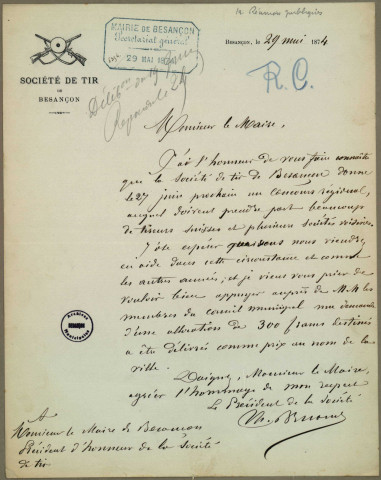 Réunions publiques
Besançon, le 29 mai 1874
MAIRIE DE BESANÇON
Secrétariat général
29 MAI 1874
R. C.
SOCIÉTÉ DE TIR
DE
BESANÇON
Monsieur le Maire,
J'ai l'honneur de vous faire connaître
que la Société de tir de Besançon donne
le 27 juin prochain un concours régional,
auquel doivent prendre part beaucoup
de tireurs suisses et plusieurs sociétés voisines.
J'ose espérer que vous nous viendrez
en aide dans cette circonstance et comme
les autres années, et je viens vous prier de
vouloir bien appuyer auprès de M.M. les
membres du conseil municipal ma demande
d'une allocation de 300 francs destinés
a être délivrés comme prix au nom de la
ville.
Daignez, Monsieur le Maire,
agréer l'hommage de mon respect
Le Président de la Société
A
Monsieur le Maire de Besançon
Président d'honneur de la Société
de tir
Archives
BESANÇON
Municipales